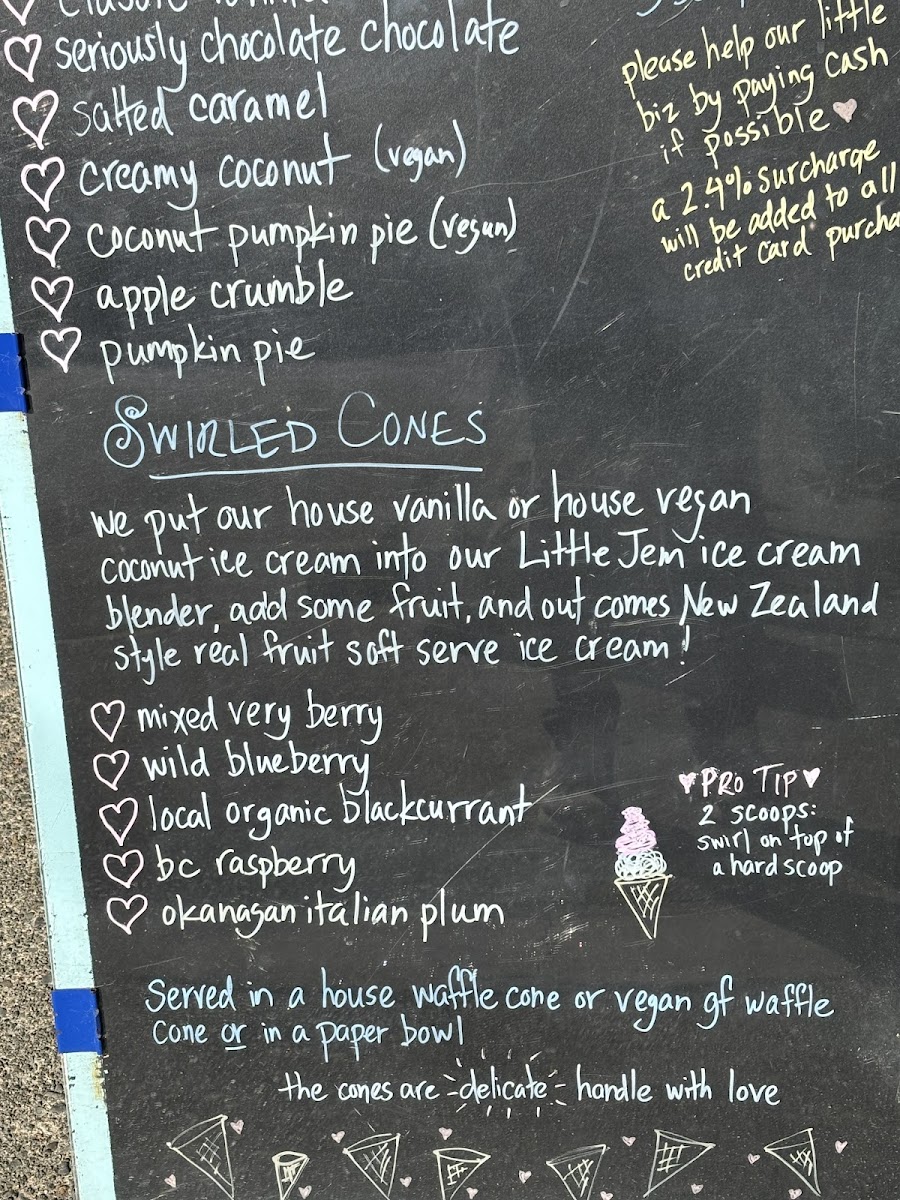 seriously chocolate chocolate
salted caramel
creamy coconut (vegan)
coconut pumpkin pie (vegan)
apple crumble
pumpkin pie
please help our little
biz by paying cash
if possible
a 2.4% surcharge
will be added to all
credit card purcha
SWIRLED CONES
we put our house vanilla or house vegan
coconut ice cream into our Little Jem ice cream
blender, add some fruit, and out comes New Zealand
style real fruit soft serve ice cream!
mixed very berry
wild blueberry
local organic blackcurrant
bc raspberry
okanagan italian plum
PRO TIP
2 scoops:
swirl on top of
a hard scoop
Served in a house waffle cone or vegan gf waffle
cone or in a paper bowl
the cones are delicate - handle with love